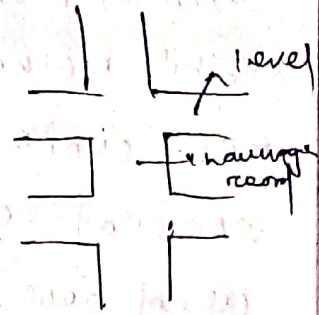 Level
Haulage
room